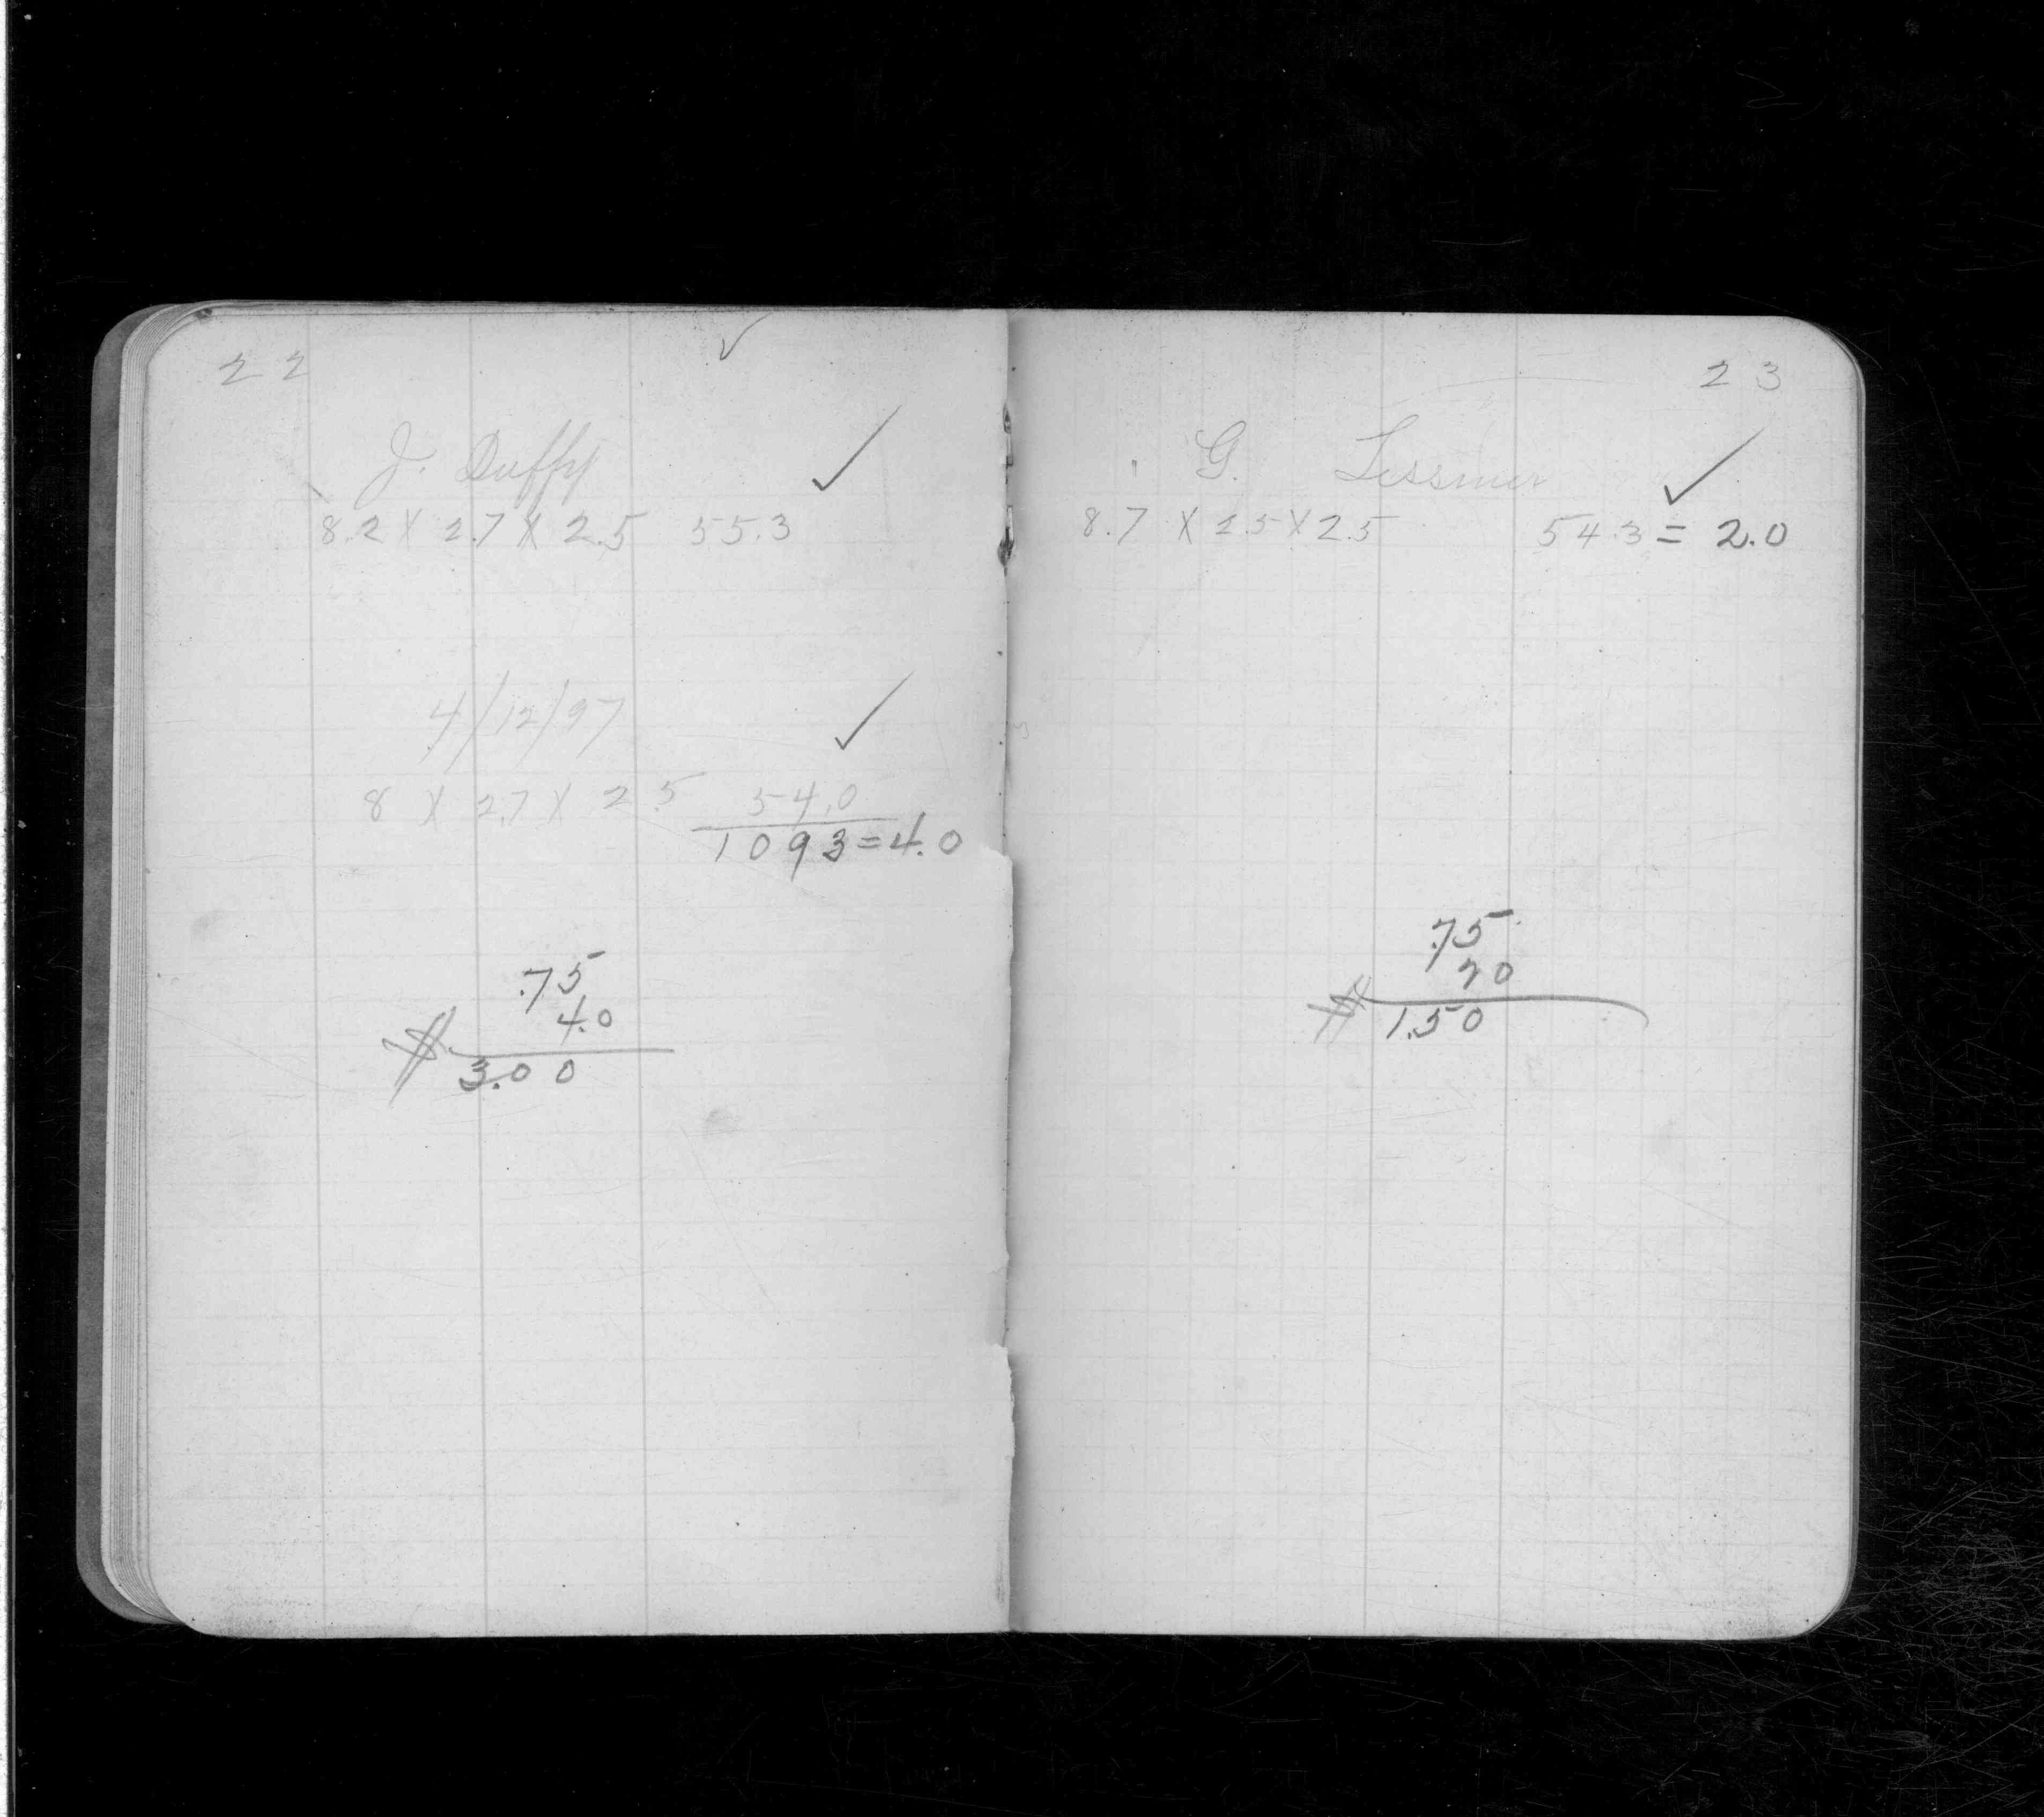 22
✓
J. Duffy ✓
8.2 X 2.7 X 2.5 55.3
4/12/97 ✓
8 X 2.7 X 2.5 54.0
1093 = 4.0
.75
4.0
$ 3.00
23
G. ✓
8.7 X 2.5 X 2.5 54.3 = 2.0
.75
20
$ 1.50